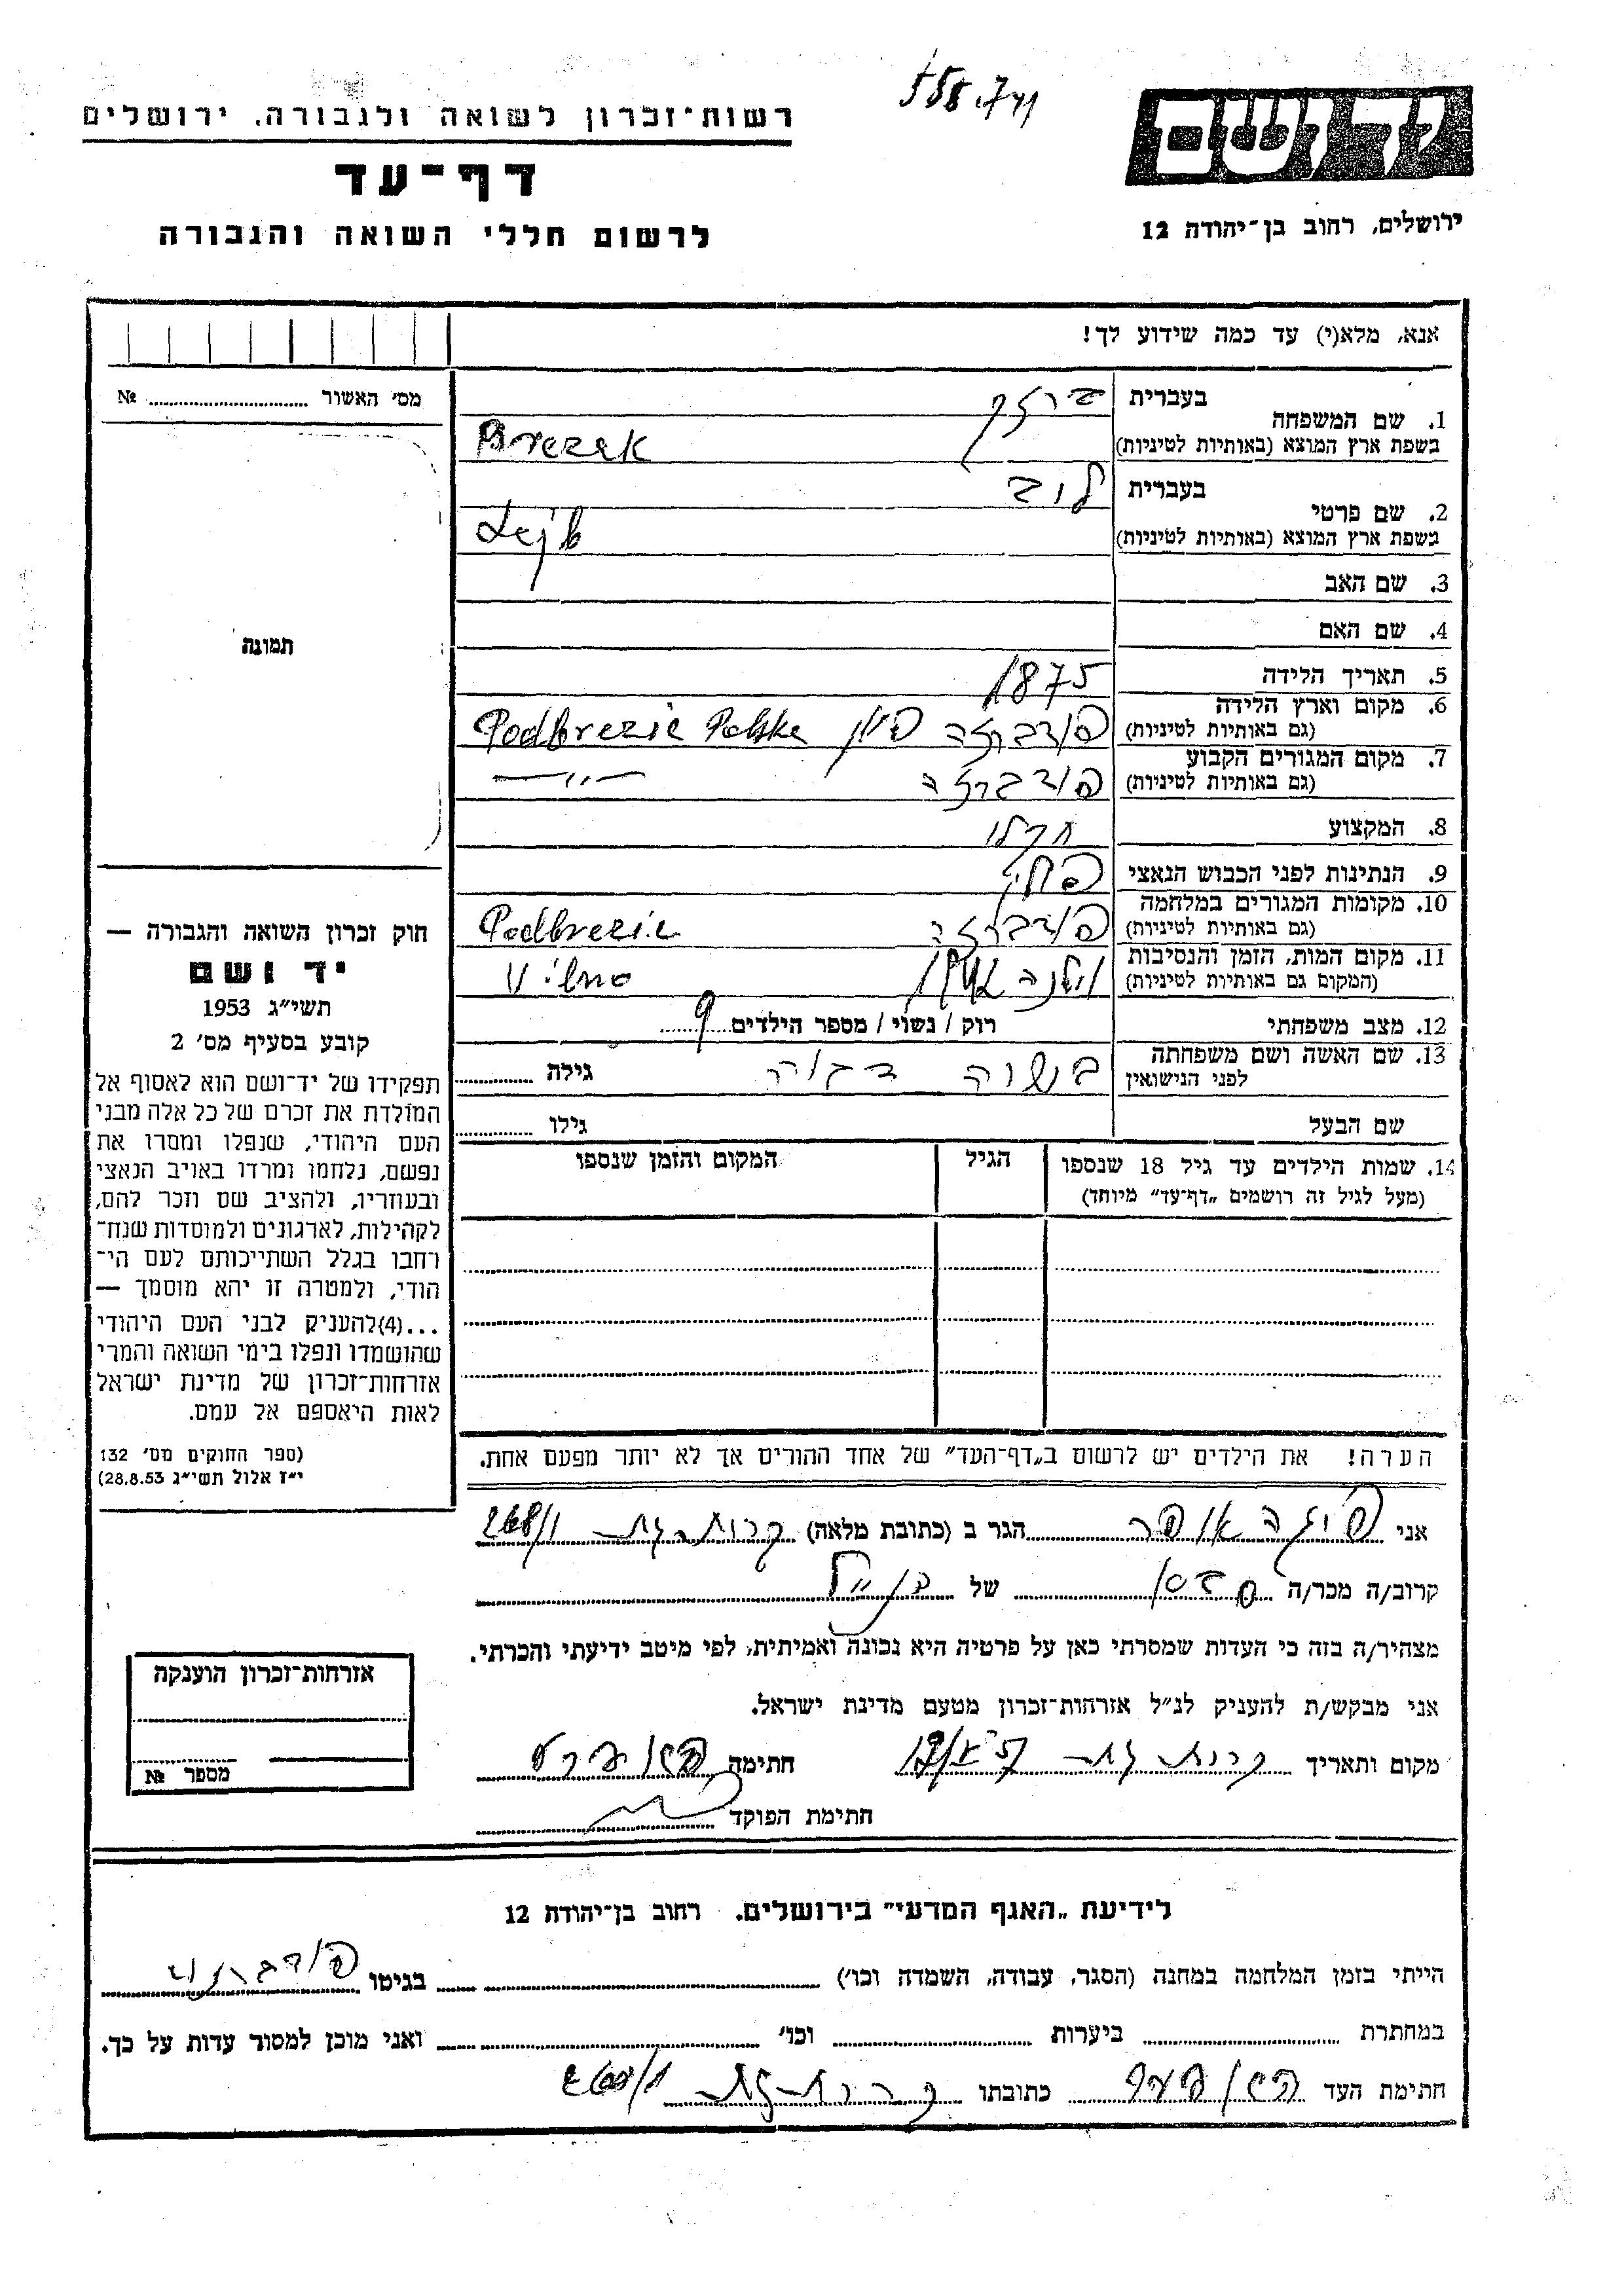 רשות־זכרון לשואה ולגבורה, ירושלים
דף־עד
לרשום חללי השואה והגבורה
ידושם
ירושלים, רחוב בן־יהודה 12
אנא, מלא(י) עד כמה שידוע לך!
מס׳ האשור № 
1. שם המשפחה
בעברית ברזק
בשפת ארץ המוצא (באותיות לטיניות) Brezak
2. שם פרטי
בעברית לוב
בשפת ארץ המוצא (באותיות לטיניות) Lejb
3. שם האב
4. שם האם
5. תאריך הלידה 1875
6. מקום וארץ הלידה
(גם באותיות לטיניות) פודברזה פולין Podbrezie Polska
7. מקום המגורים הקבוע
(גם באותיות לטיניות) פודברזה —״—
8. המקצוע חקלאי
9. הנתינות לפני הכבוש הנאצי פולני
10. מקומות המגורים במלחמה
(גם באותיות לטיניות) פודברזה Podbrezie
11. מקום המות, הזמן והנסיבות
(המקום גם באותיות לטיניות) וילנה
12. מצב משפחתי רוק / נשוי / מספר הילדים 9
13. שם האשה ושם משפחתה
לפני הנישואין גילה
שם הבעל גילו
14. שמות הילדים עד גיל 18 שנספו
(מעל לגיל זה רושמים „דף־עד״ מיוחד)
הגיל
המקום והזמן שנספו
תמונה
חוק זכרון השואה והגבורה —
יד ושם
תשי״ג 1953
קובע בסעיף מס׳ 2
תפקידו של יד־ושם הוא לאסוף אל
המולדת את זכרם של כל אלה מבני
העם היהודי, שנפלו ומסרו את
נפשם, נלחמו ומרדו באויב הנאצי
ובעוזריו, ולהציב שם וזכר להם,
לקהילות, לארגונים ולמוסדות שנח־
רחבו בגלל השתייכותם לעם הי־
הודי, ולמטרה זו יהא מוסמך —
...(4)להעניק לבני העם היהודי
שהושמדו ונפלו בימי השואה והמרי
אזרחות־זכרון של מדינת ישראל
לאות היאספם אל עמם.
(ספר החוקים מס׳ 132
י״ז אלול תשי״ג 28.8.53)
הערה! את הילדים יש לרשום ב„דף־העד״ של אחד ההורים אך לא יותר מפעם אחת.
אני הגר ב (כתובת מלאה) קרית גת
קרוב/ה מכר/ה של
מצהיר/ה בזה כי העדות שמסרתי כאן על פרטיה היא נכונה ואמיתית, לפי מיטב ידיעתי והכרתי.
אני מבקש/ת להעניק לנ״ל אזרחות־זכרון מטעם מדינת ישראל.
מקום ותאריך קרית גת חתימה
חתימת הפוקד
אזרחות־זכרון הוענקה
מספר №
לידיעת „האגף המדעי״ בירושלים. רחוב בן־יהודת 12
הייתי בזמן המלחמה במחנה (הסגר, עבודה, השמדה וכו׳) בגיטו
במחתרת ביערות וכו׳ ואני מוכן למסור עדות על כך.
חתימת העד כתובתו קרית גת